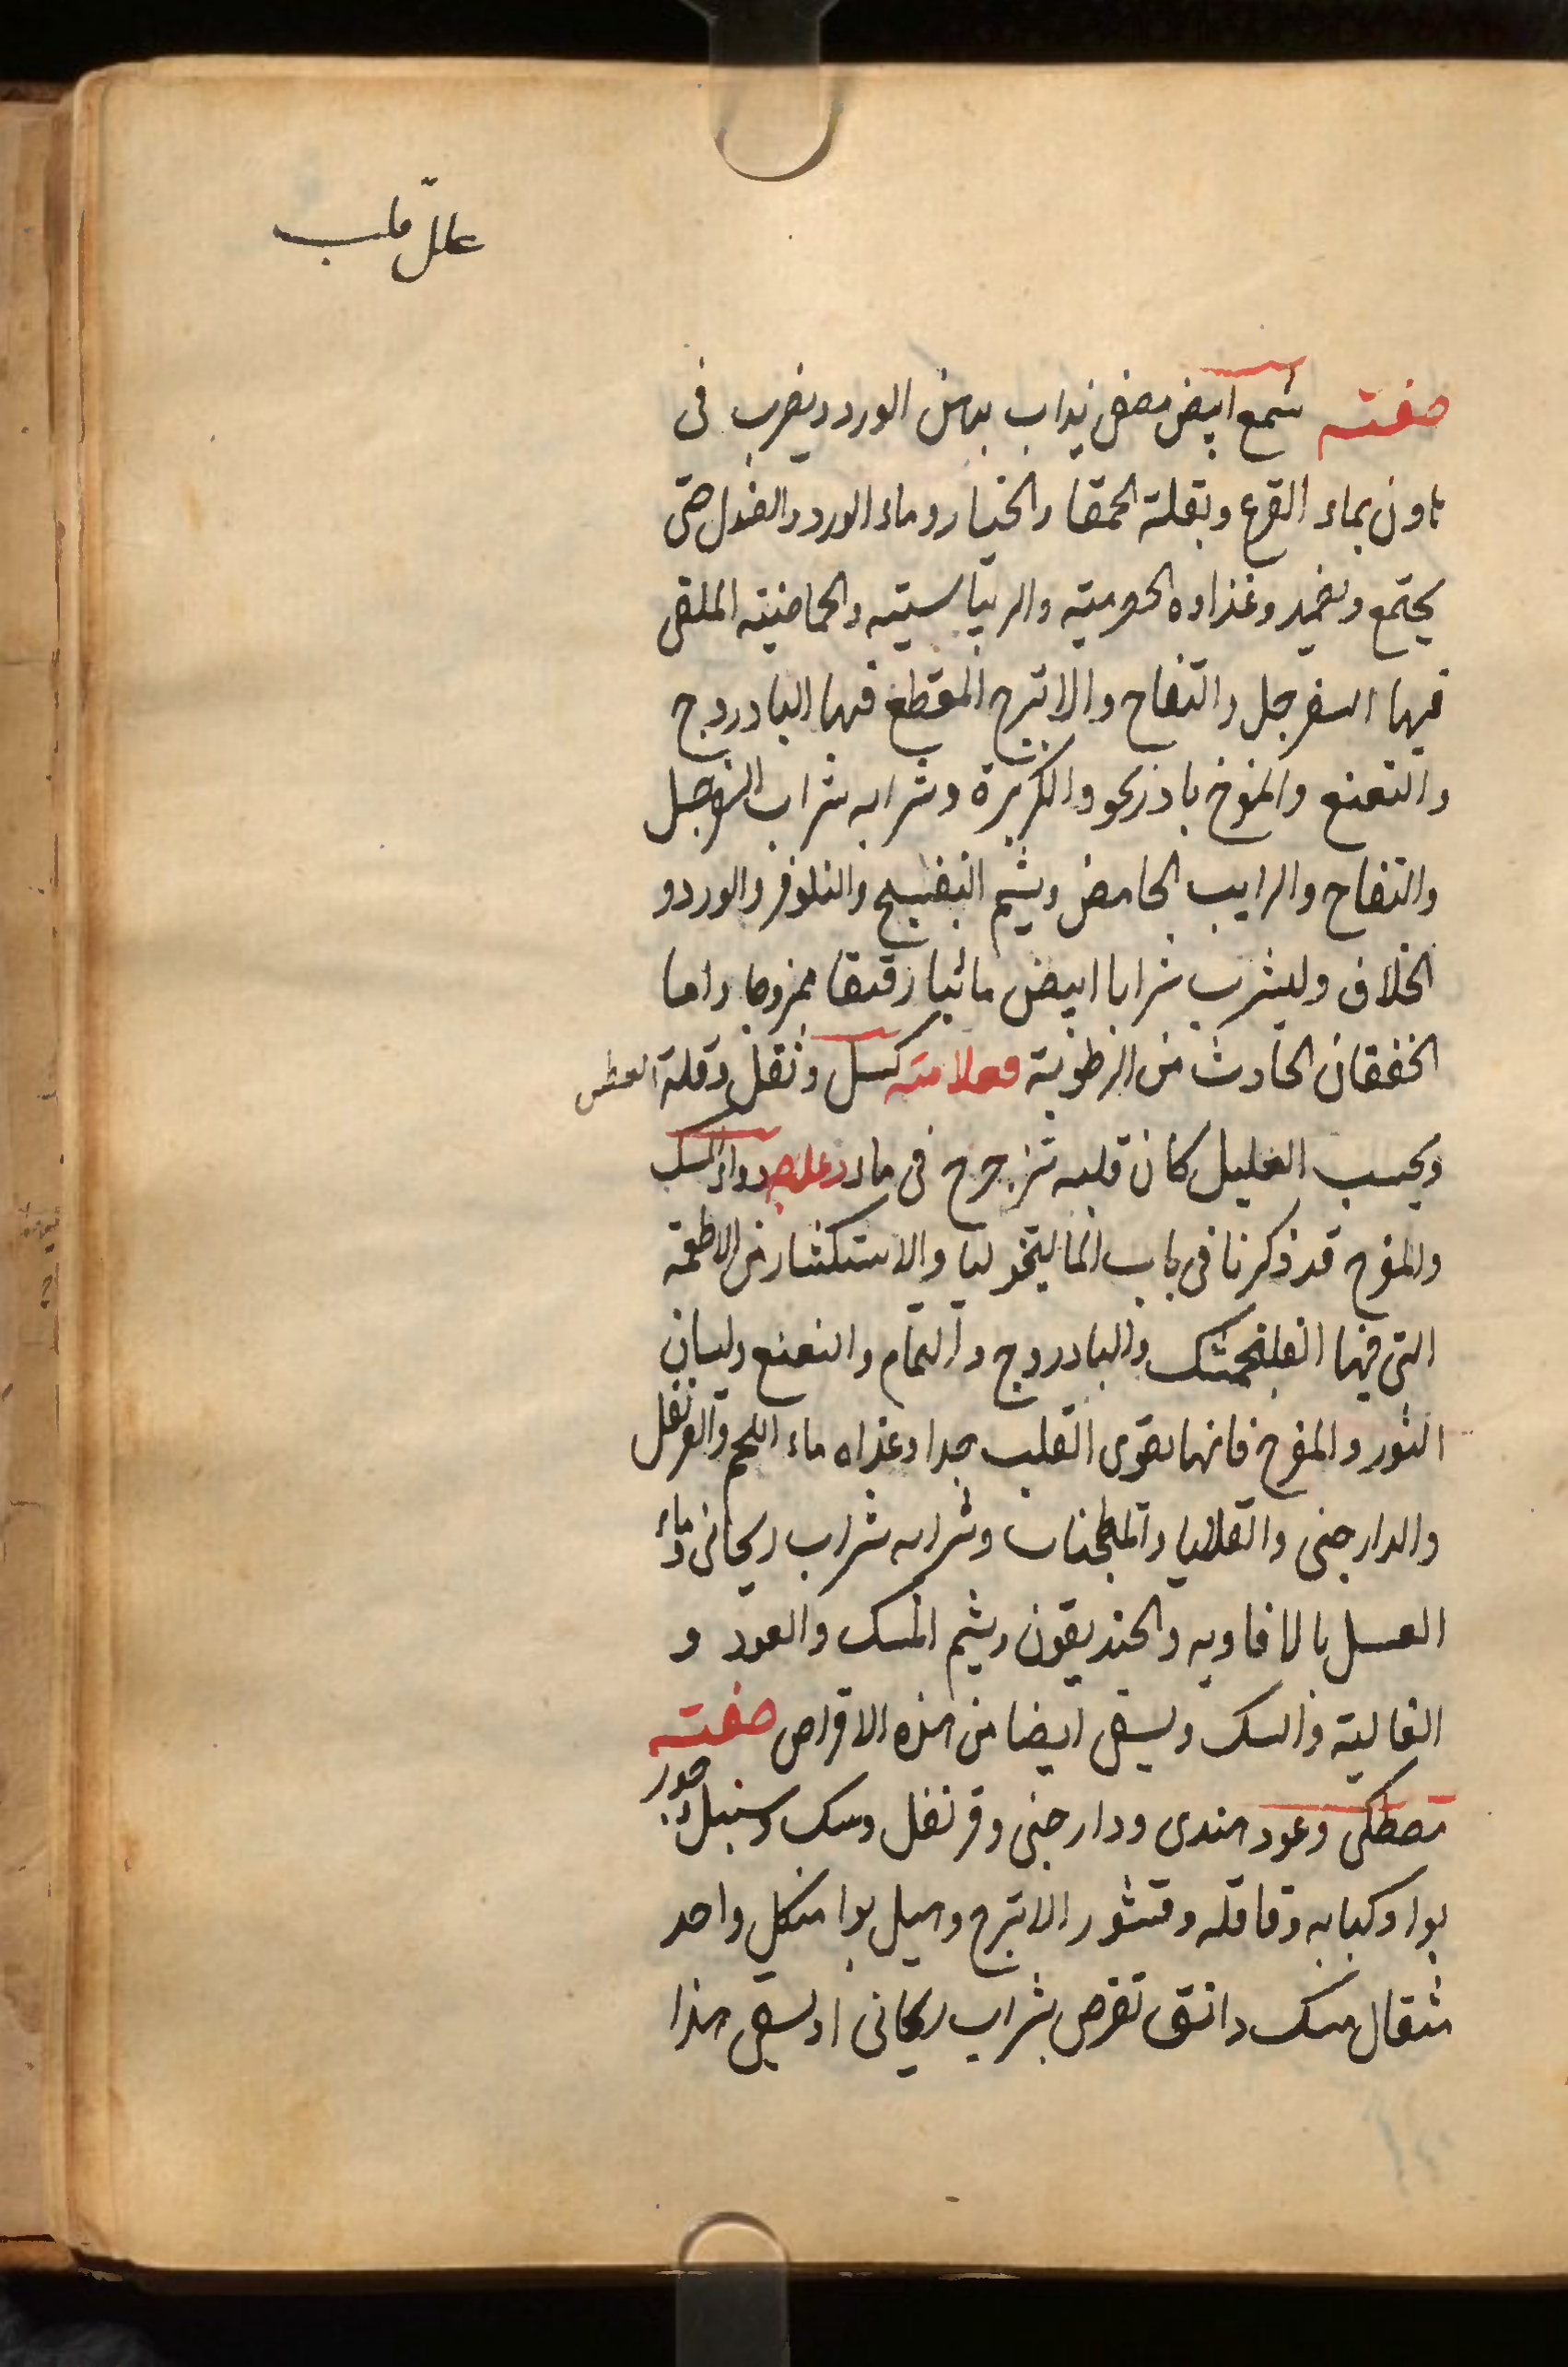 علل قلب
صفته شمع ابيض مصفى يذاب بدهن الورد ويضرب فى
هاون بماء القرع وبقلة الحمقا والخيار وماء الورد والصندل حتى
يجتمع ويضمد وغذاوه الحصرمية والريباسيته والحماضيته الملقى
فيها السفرجل والتفاح والاترج المقطع فيها البادروج
والنعنع والمفرح بادرنجو والكزبرة وشرابه شراب السفرجل
والتفاح والرايب الحامض ويشم البنفسج والنلوفر والورد و
الخلاف وليشرب شرابا ابيض مائيا رقيقا ممزوجا واما
الخفقان الحادث من الرطوبة فعلامته كسل وثقل وقلة العطش
ويحسب العليل كان قلبه تترجرج فى ماء وعلاجه دواء المسك
والمفرح قد ذكرنا فى باب الماليخوليا والاستكثار من الاطعمة
التى فيها الفلنجمشك والبادروج والنمام والنعنع ولسان
الثور والمفرح فانها يقوى القلب جدا وغذاه ماء اللحم والقرنفل
والدارجينى والقلايا والمطجنات وشرابه شراب ريحانى وماء
العسل بالافاويه والخنديقون ويشم المسك والعود و
الغالية والسك ويسقى ايضا من هذه الاقراص صفته
مصطكى وعود هندى ودارجينى وقرنفل وسك وسنبل وجوز
بوا وكبابه وقاقله وقشور الاترج وهيل بوا من كل واحد
مثقال مسك دانق تقرص بشراب ريحانى او يسقى هذا